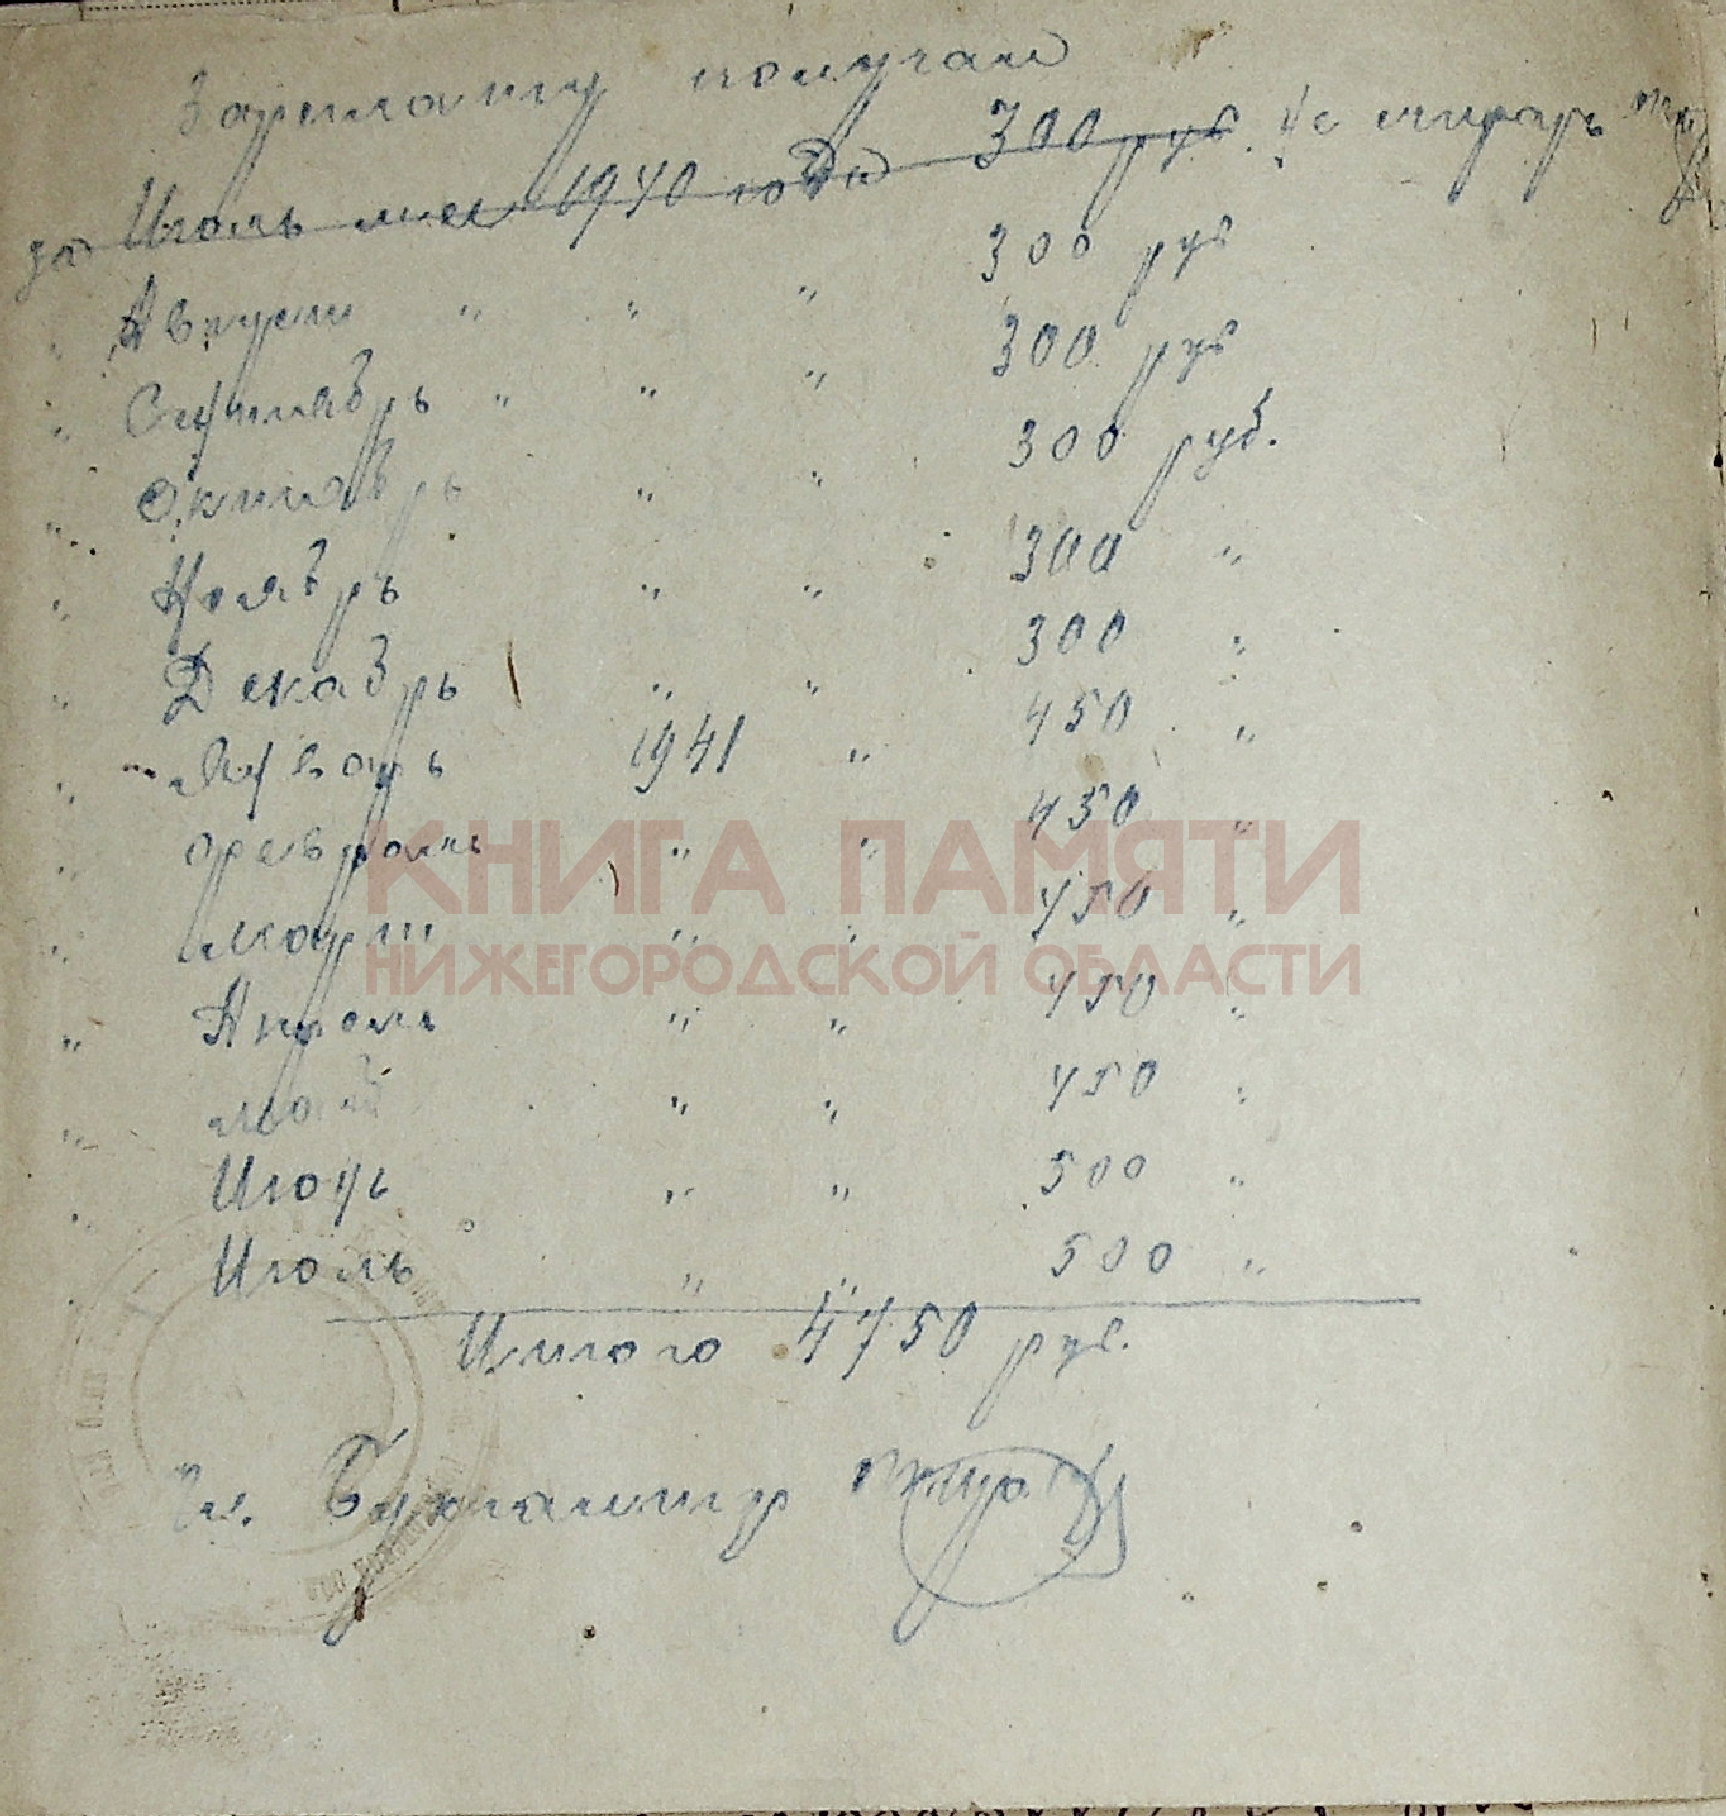 Зарплату получал
за Июль мес 1940 года 300 руб. Не считать
" Август " " " 300 руб
" Сентябрь " " " 300 руб
" Октябрь " " 300 руб.
" Ноябрь " " 300 "
" Декабрь " " 300 "
" Январь 1941 " 450 "
" февраль " " 450 "
" март " " 450 "
" Апрель " " 450 "
" май " " 450 "
" Июнь " " 500 "
" Июль " " 500 "
Итого 4750 руб.
Гл. Бухгалтер
КНИГА ПАМЯТИ
НИЖЕГОРОДСКОЙ ОБЛАСТИ